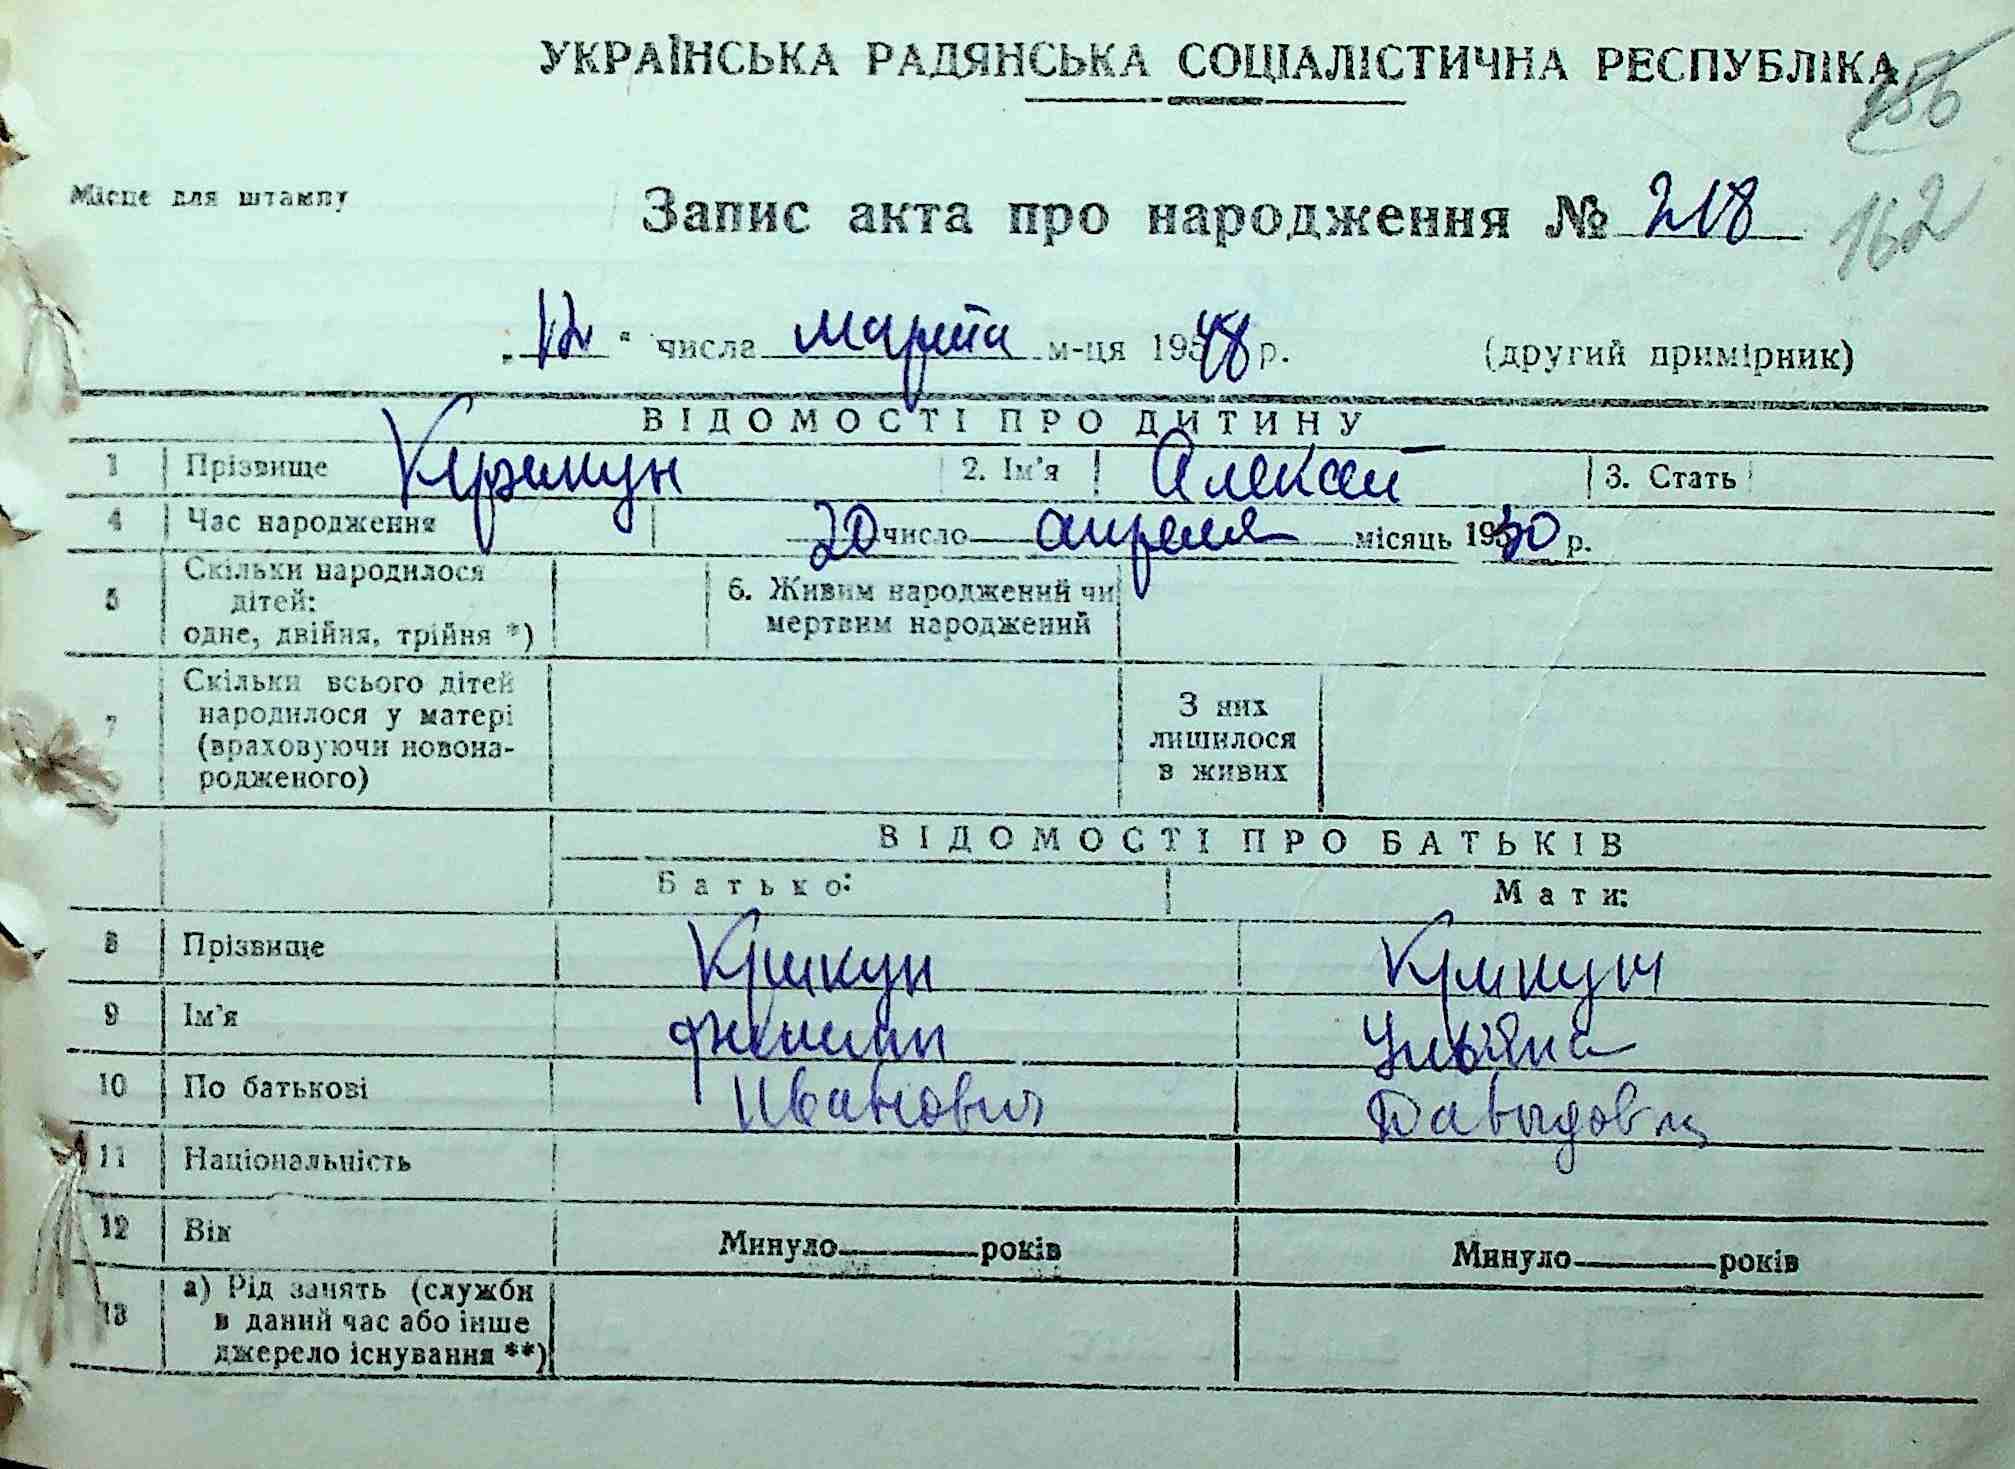 УКРАЇНСЬКА РАДЯНСЬКА СОЦІАЛІСТИЧНА РЕСПУБЛІКА
156
Місце для штампу
Запис акта про народження № 218
162
„ 12 “ числа марта м-ця 1948 р. (другий примірник)
ВІДОМОСТІ ПРО ДИТИНУ
1 Прізвище Крикун 2. Ім'я Алексей 3. Стать
4 Час народження 20 число апреля місяць 1930 р.
5 Скільки народилося дітей: одне, двійня, трійня *) 6. Живим народжений чи мертвим народжений
7 Скільки всього дітей народилося у матері (враховуючи новона-родженого) З них лишилося в живих
ВІДОМОСТІ ПРО БАТЬКІВ
Батько: Мати:
8 Прізвище Крикун Крикун
9 Ім'я Филипп Ульяна
10 По батькові Иванович Давыдовн
11 Національність
12 Вік Минуло років Минуло років
13 а) Рід занять (служби в даний час або інше джерело існування **)